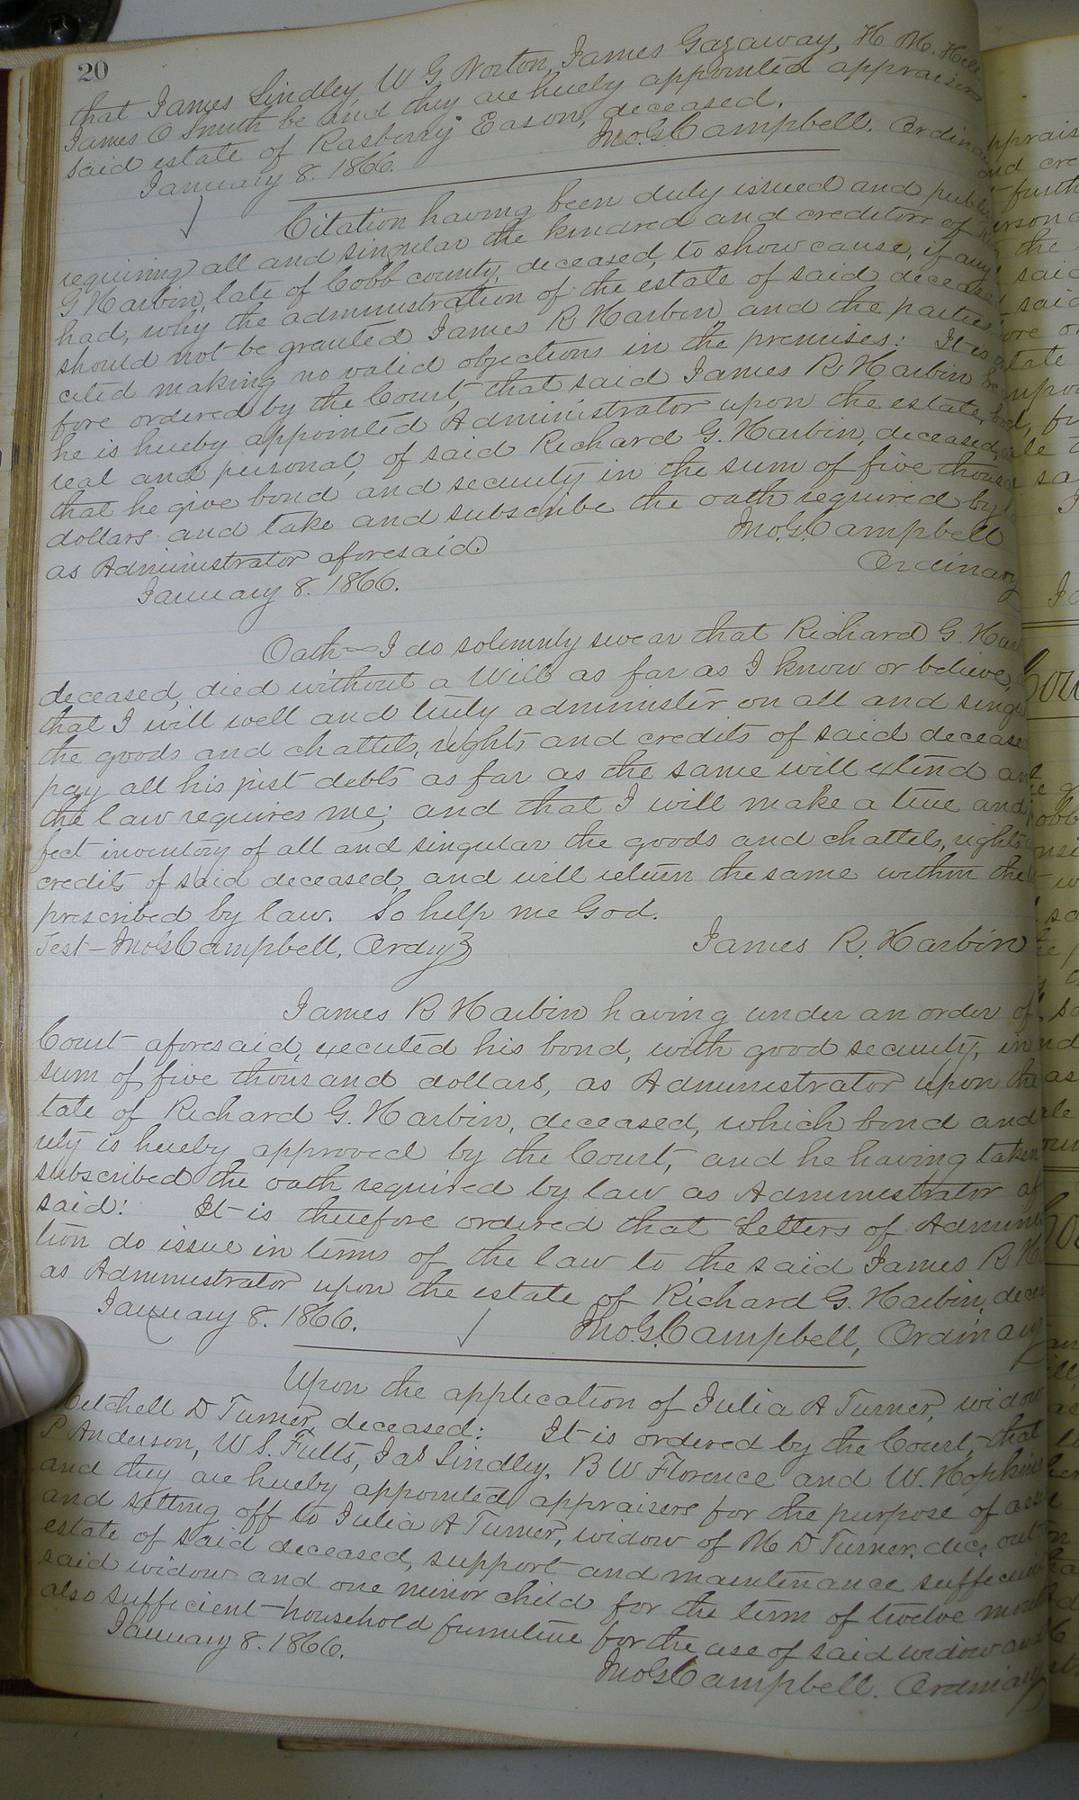 20
that James Lindley, W G Norton, James Gazaway, H M. Hill
James O Smith be and they are hereby appointed appraisers
said estate of Rasberry Eason, deceased.
January 8. 1866. Jno. G. Campbell. Ordina
Citation having been duly issued and publi
requiring all and singular the kindred and creditors of
G Harbin, late of Cobb county, deceased, to show cause, if any
had, why the administration of the estate of said deceased
should not be granted James R Harbin and the parties
cited making no valid objections in the premises: It is
fore ordered by the Court, that said James R Harbin be
he is hereby appointed Administrator upon the estate,
real and personal, of said Richard G. Harbin, deceased,
that he give bond and security in the sum of five thousa
dollars and take and subscribe the oath required by
as Administrator aforesaid Jno. G. Campbell
January 8. 1866. Ordinary
Oath — I do solemnly swear that Richard G. Har
deceased, died without a Will as far as I know or believe,
that I will well and truly administer on all and singu
the goods and chattels, rights and credits of said decease
pay all his just debts as far as the same will extend an
the law requires me; and that I will make a true and
fect inventory of all and singular the goods and chattels, rights
credits of said deceased, and will return the same within the
prescribed by law. So help me God.
Test — Jno G Campbell, Ordy } James R. Harbin
James R Harbin having under an order of
Court aforesaid, executed his bond, with good security, in
sum of five thousand dollars, as Administrator upon the
tate of Richard G. Harbin, deceased, which bond and
rity is hereby approved by the Court, and he having taken
subscribed the oath required by law as Administrator af
said: It is therefore ordered that Letters of Admini
tion do issue in terms of the law to the said James R H
as Administrator upon the estate of Richard G. Harbin, decea
January 8. 1866. Jno G. Campbell, Ordinary
Upon the application of Julia A Turner, widow
Mitchell D Turner, deceased: It is ordered by the Court, that
P Anderson, W. S. Fults, Jas Lindley, B W Florence and W. Hopkins
and they are hereby appointed appraisers for the purpose of asse
and setting off to Julia A Turner, widow of M D Turner, dec, out
estate of said deceased, support and maintenance sufficient
said widow and one minor child for the term of twelve month
also sufficient household furniture for the use of said widow and
January 8. 1866. Jno G Campbell. Ordinary